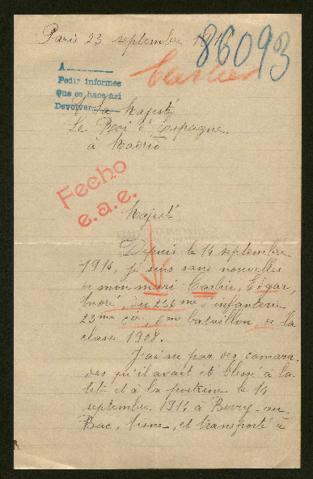 Paris 23 septembre
86093
Carlier
A
Pedir informes
Que se hace así
Devolver
A Sa Majesté
Le Roi d'Espagne
à Madrid
Fecho
e.a.e.
Majesté
Depuis le 14 septembre
1914, je suis sans nouvelles
de mon mari Carlier, Edgar,
André, du 236me infanterie
23me Cie, bataillon, de la
classe 1908.
J'ai su par des camara
des qu'il avait été blessé à la
tête et à la poitrine le 14
septembre 1914 à Berry-au
Bac, Aisne, et transporté à